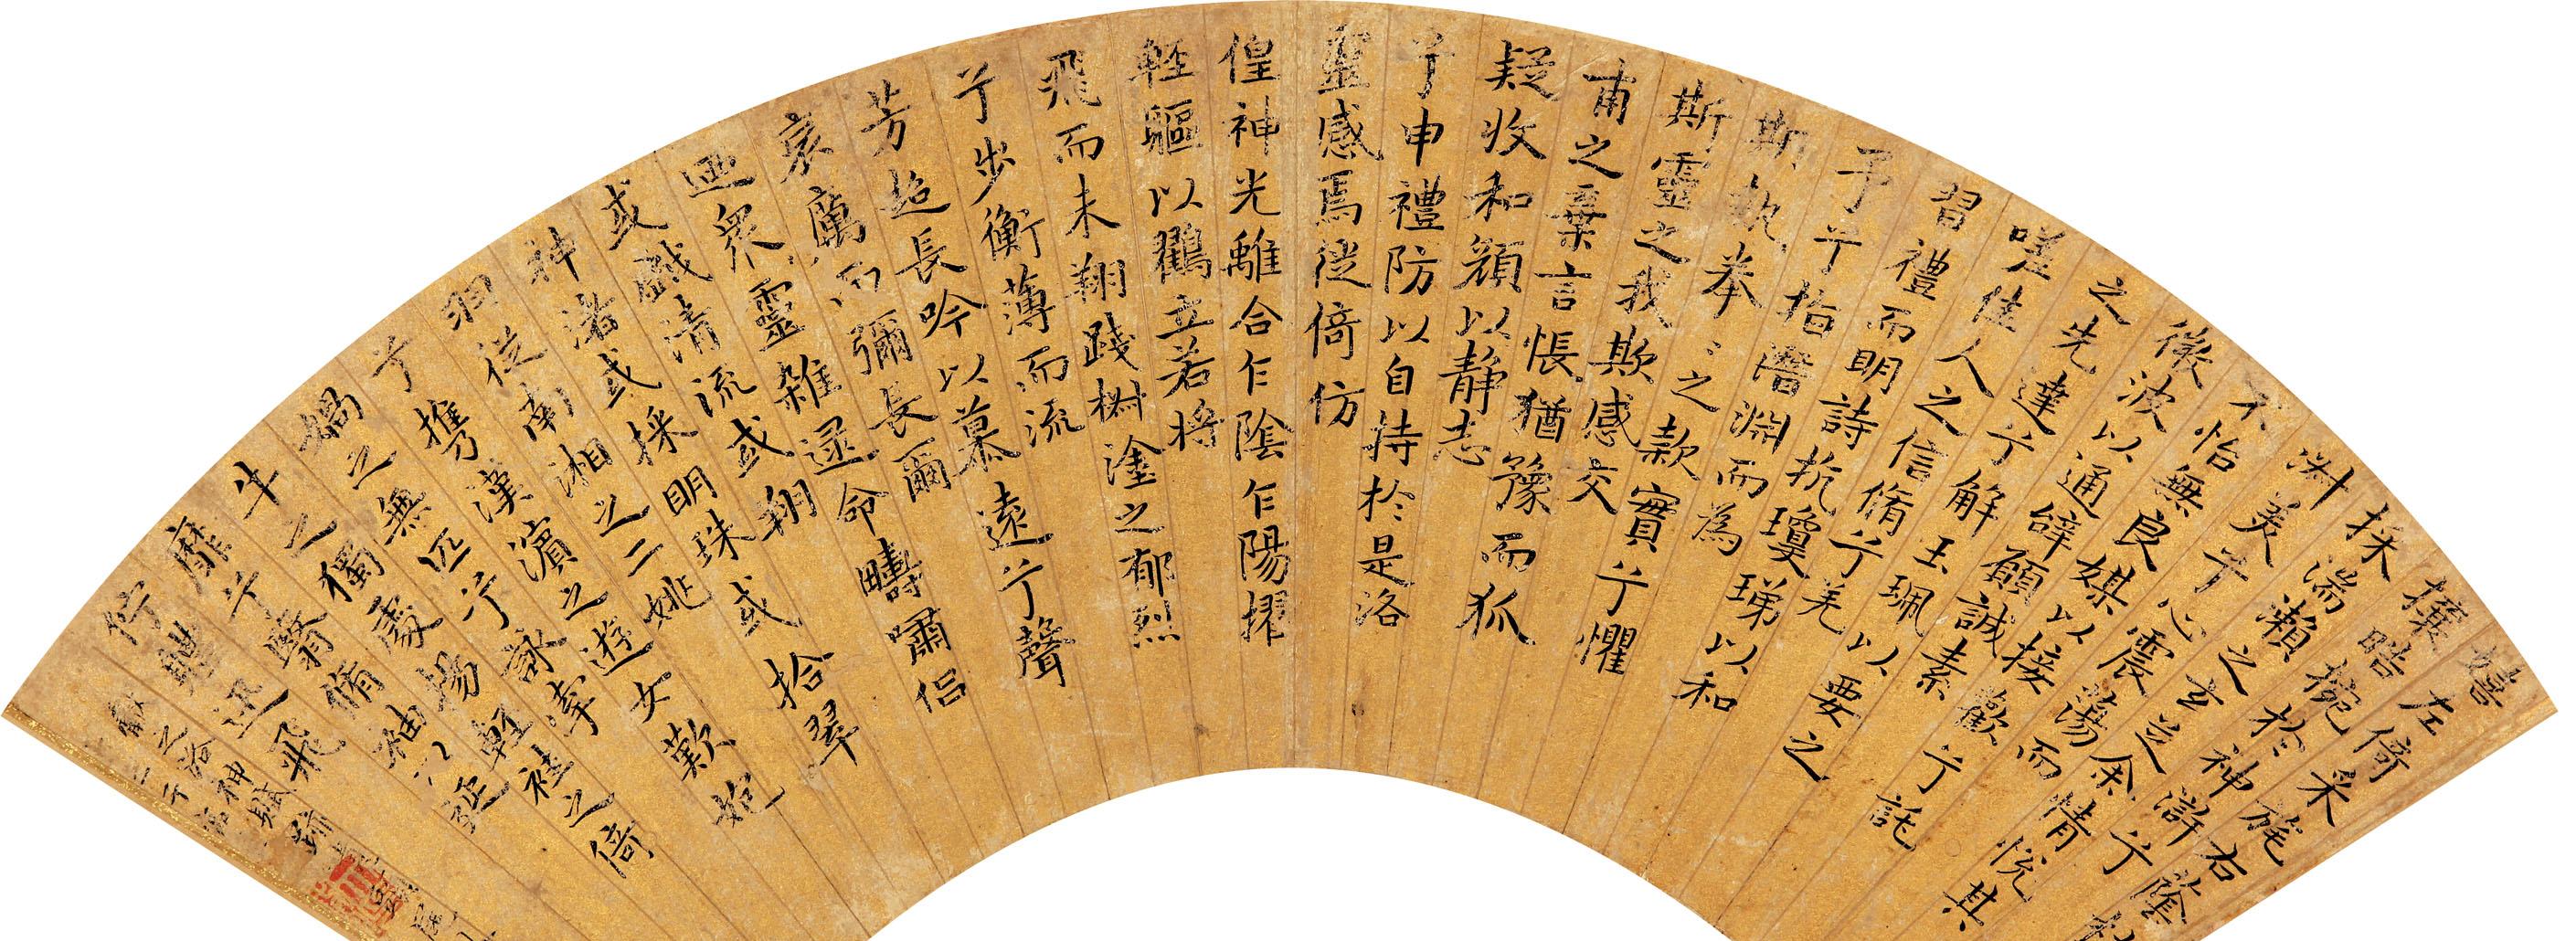 嬉左倚采旄右蔭
攘皓捥於神滸兮
採湍瀨之玄芝余情悅其
淋美于心震蕩而
不怡無良媒以接歡兮託
微波以通辭願誠素
之先達兮解玉珮以要之
嗟佳人之信脩兮羌
習禮而明詩抗瓊珶以和
予兮指潛淵而為
斯執眷〻之款實兮懼
斯靈之我欺感交
甫之棄言悵猶豫而狐
疑收和顏以靜志
兮申禮防以自持於是洛
靈感焉徙倚仿
偟神光離合乍陰乍陽擢
輕軀以鶴立若將
飛而未翔踐椒塗之郁烈
兮步衡薄而流
芳超長吟以慕遠兮聲
哀厲而彌長爾
迺眾靈雜遝命疇嘯侶
或戲清流或翔
神渚或採明珠或拾翠
羽從南湘之二姚
兮攜漢濱之遊女歎匏
媧之無匹兮詠牽
牛之獨處揚輕袿之倚
靡兮翳脩袖以延
佇體迅飛
獻之洛神賦